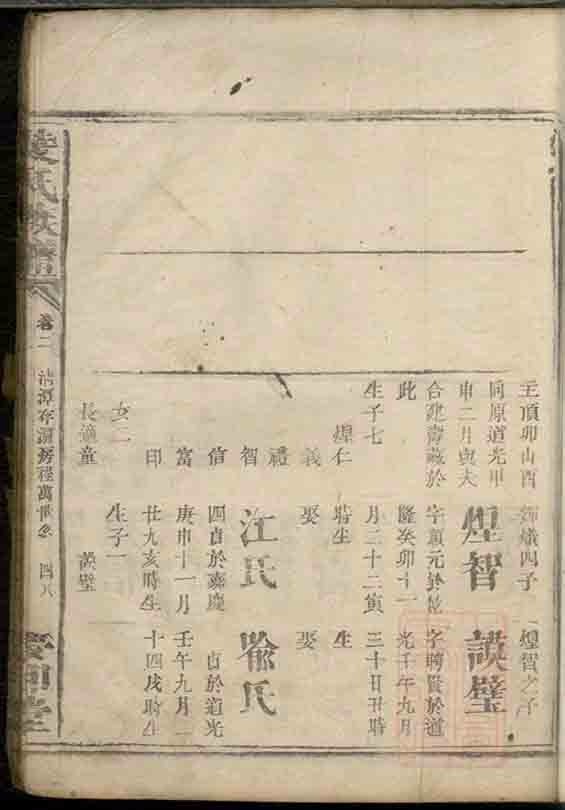 主頂卯山酉
同原道光甲
申二月與夫
合建壽藏於
此
生子七
煌仁
義
禮
智
信
富
印
女二
長適童
輝熾四子
煌智
字顯元於乾
隆癸卯十一
月二十二寅
時生
娶
江氏
四貞於嘉慶
庚申十一月
廿九亥時生
生子一
謨璧
煌智之子
謨璧
字聘賢於道
光壬午九月
三十日丑時
生
娶
喻氏
貞於道光
壬午九月二
十四戌時生
氏族譜
卷二
四八
堂